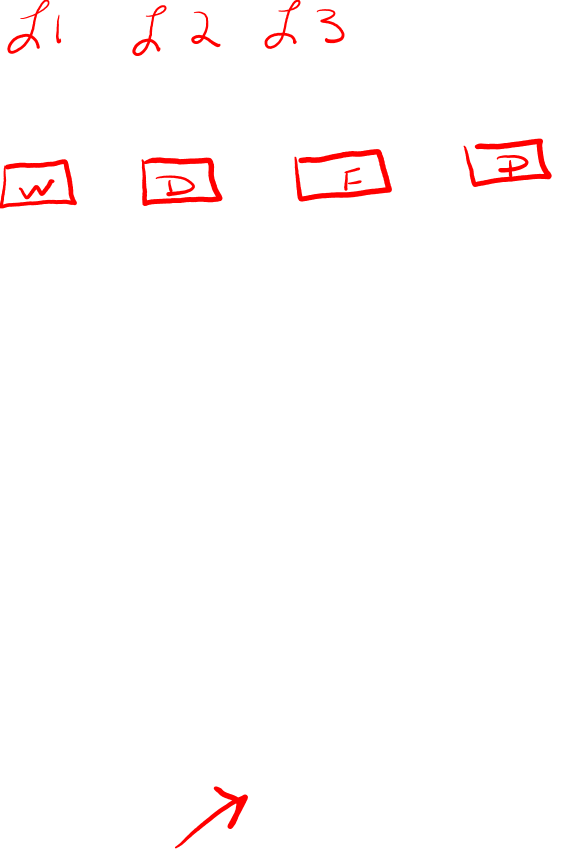 L1 L2 L3
W D F P